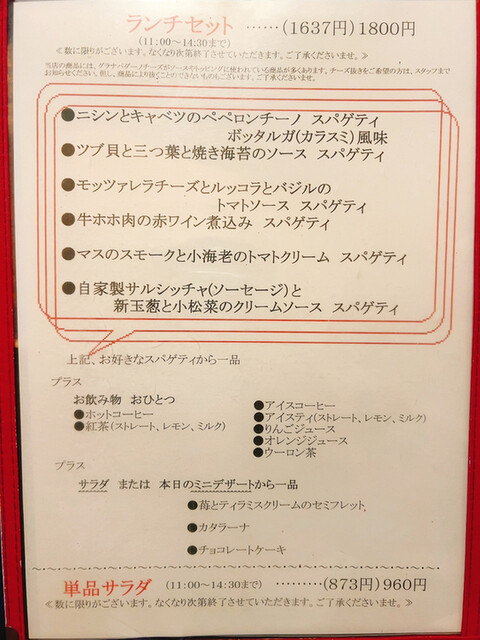 ランチセット ……(1637円)1800円
(11:00～14:30まで)
≪数に限りがございます。なくなり次第終了させていただきます。ご了承くださいませ。≫
当店の商品には、グラナパダーノチーズがソースやトッピングに使われている商品が多くあります。チーズ抜きをご希望の方は、スタッフまで
お知らせください。但し、商品により抜くことのできないものもございます。ご了承くださいませ。
●ニシンとキャベツのペペロンチーノ スパゲティ
ボッタルガ(カラスミ)風味
●ツブ貝と三つ葉と焼き海苔のソース スパゲティ
●モッツァレラチーズとルッコラとバジルの
トマトソース スパゲティ
●牛ホホ肉の赤ワイン煮込み スパゲティ
●マスのスモークと小海老のトマトクリーム スパゲティ
●自家製サルシッチャ(ソーセージ)と
新玉葱と小松菜のクリームソース スパゲティ
上記、お好きなスパゲティから一品
プラス
お飲み物 おひとつ
●ホットコーヒー
●紅茶(ストレート、レモン、ミルク)
●アイスコーヒー
●アイスティ(ストレート、レモン、ミルク)
●りんごジュース
●オレンジジュース
●ウーロン茶
プラス
サラダ または 本日のミニデザートから一品
●苺とティラミスクリームのセミフレット
●カタラーナ
●チョコレートケーキ
単品サラダ (11:00～14:30まで) ………(873円)960円
≪数に限りがございます。なくなり次第終了させていただきます。ご了承くださいませ。≫